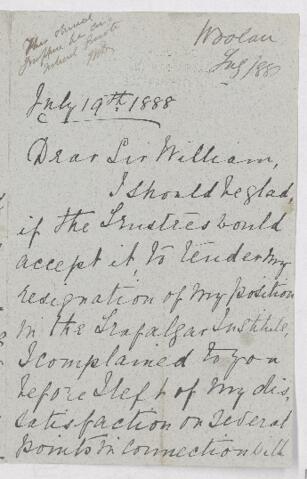 This should
Woolan
July/88
July 19th 1888
Dear Sir William,
I should be glad,
if the Trustees would
accept it, to tender my
resignation of my position
in the Trafalgar Institute,
I complained to you
before I left of my dis,
satisfaction on several
points in connection with